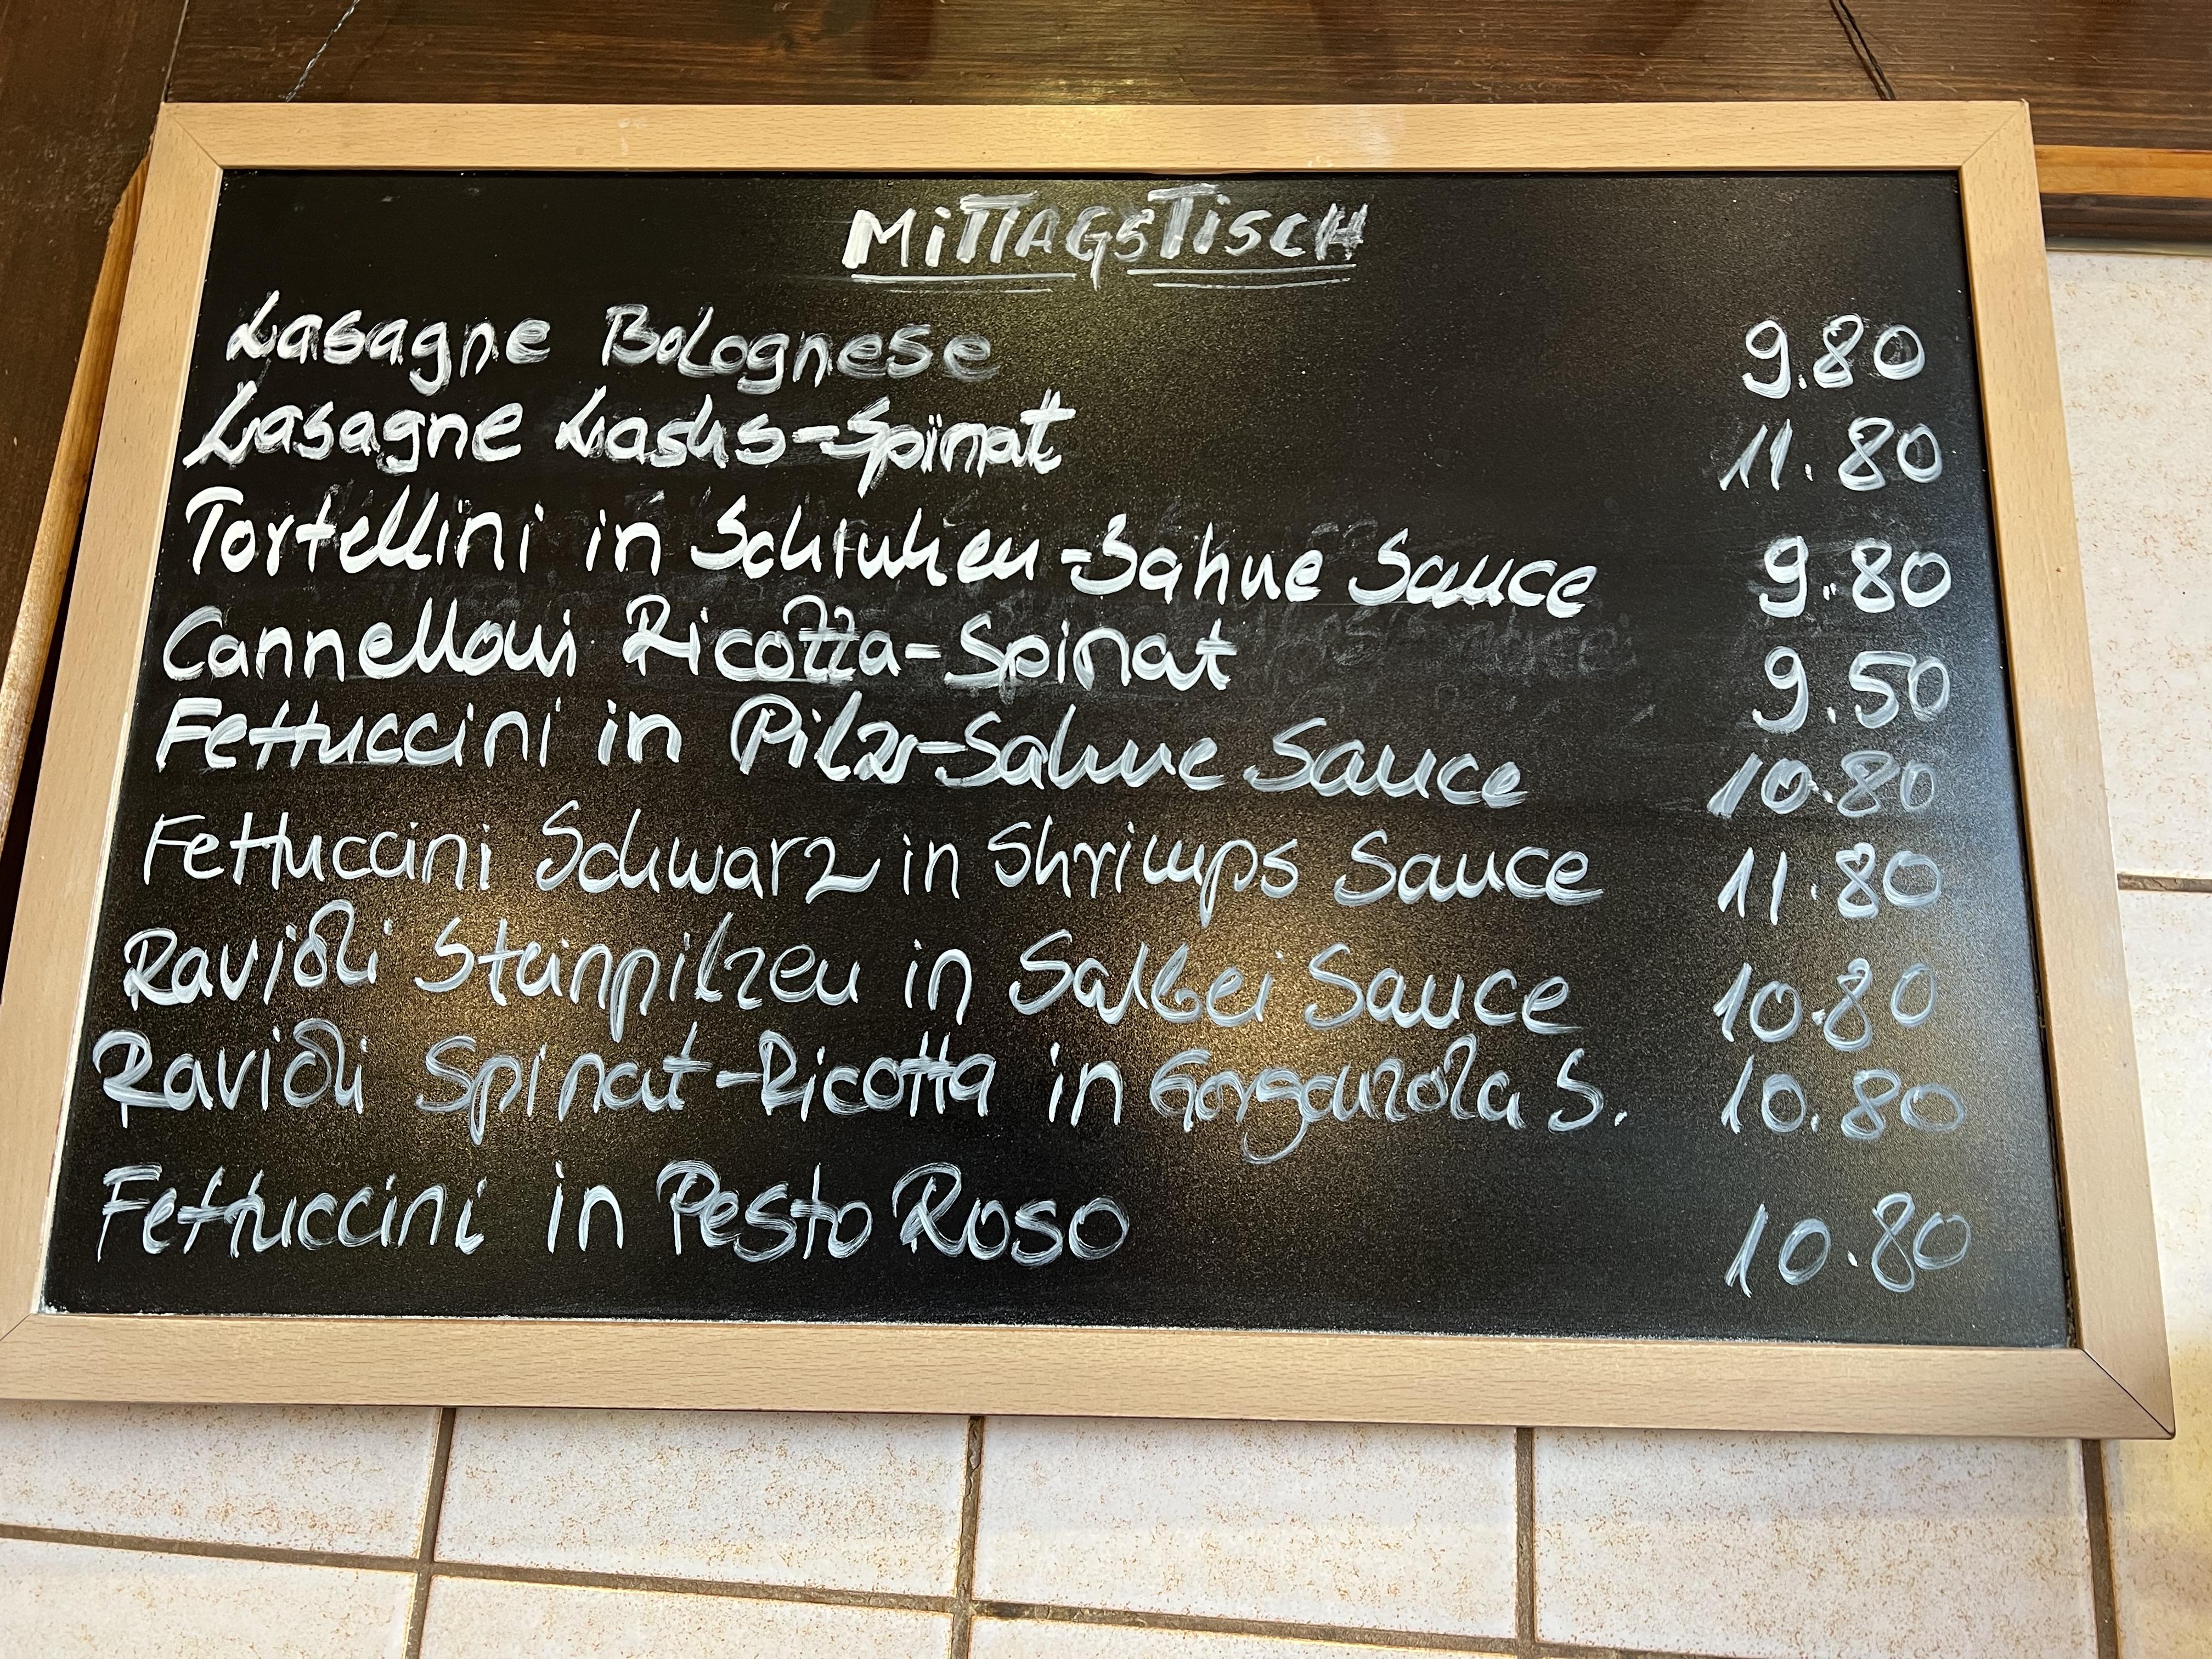 MiTTAGSTiSCH
Lasagne Bolognese 9.80
Lasagne Lachs-Spinat 11.80
Tortellini in Schinken-Sahne Sauce 9.80
Cannelloni Ricotta-Spinat 9.50
Fettuccini in Pilz-Sahne Sauce 10.80
Fettuccini Schwarz in Shrimps Sauce 11.80
Ravioli Steinpilzen in Salbei Sauce 10.80
Ravioli Spinat-Ricotta in Gorganzola S. 10.80
Fettuccini in Pesto Roso 10.80